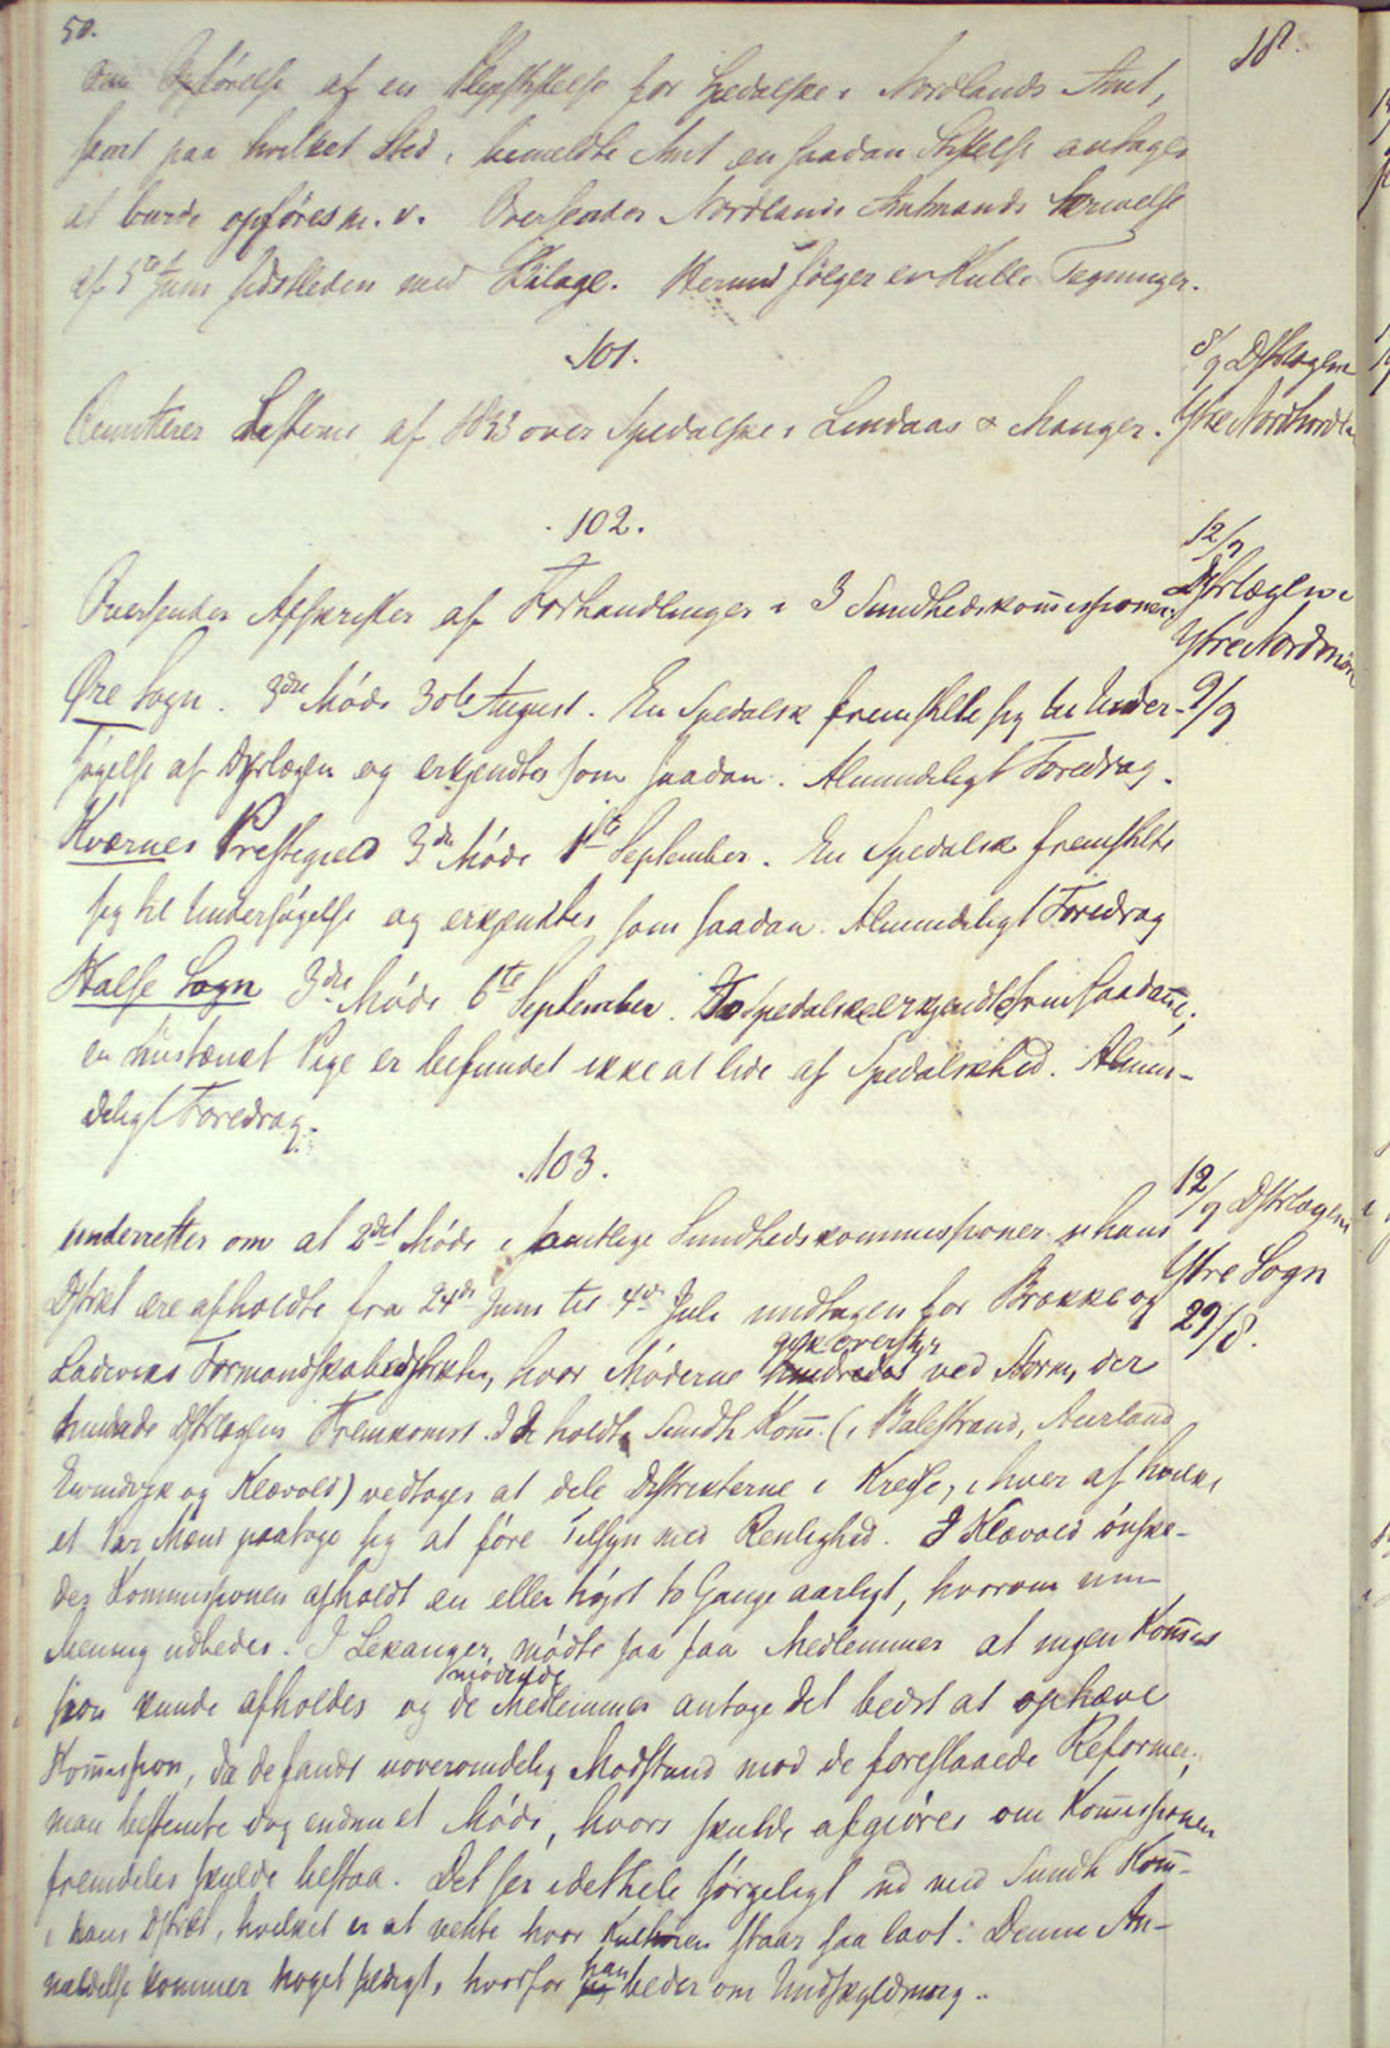 50.
18
Om Opførelse af en Pleiestiftelse for Spedalske i Nordlands Amt,
samt paa hvilket Sted i bemeldte Amt en saadan Stiftelse antages
at burde opføres m. v. Oversender Nordlands Amtmands Skrivelse
af 5te Juni sidstleden med Bilage. Herved følger en Rulle Tegninger.
101.
8/9 Dstrlægen
Ytre Nordhordl
Remitterer Listerne af over Spedalske i Lindaas & Manger.
102.
12/9
Dstrlægen i
Ytre Nordmør
9/9
Oversender Afskrifter af Forhandlinger i 3 Sundhedskommissioner.
Øre Sogn. 3die Møde 30te August. En Spedalsk fremstillte sig til Under-
søgelse af Dstrlægen og erkjendtes som saadan. Almindeligt Foredrag.
Kværnes Prestegield 3die Møde 1ste September. En Spedalsk fremstilte
sig til Undersøgelse og erkjendtes som saadan. Almindeligt Foredrag
Halse Sogn 3die Møde 6te September. To Spedalske erkjendte som saadanne;
en mistænkt Pige er befundet ikke at lide af Spedalskhed. Almin-
deligt Foredrag.
103.
12/9 Dstrlægen
Ytre Sogn
29/8.
underretter om at 2det Møde i samtlige Sundhedskommissioner i hans
Dstrikt ere afholdte fra 24de Juni til 4de Juli undtagen for Brekke og
Ladeviks Formandskabsdistrikter, hvor Møderne hindredes ved Storm, der
gik overstyr
hindrede Dstrlægens Fremkomst. I de holdte Sundh Komm. (i Balestrand, Aurland
Evindvik og Klævold) vedtoges at dele Distrikterne i Kredse, i hver af hvilke
et Par Mænd paatoge sig at føre Tilsyn med Renlighed. I Klævold ønske-
des Kommissionen afholdt en eller højst to Gange aarligt, hvorom min
Mening udbedes. I Lekanger mødte saa faa Medlemmer at ingen Kommis
sion kunde afholdes og de mødende Medlemmer antoge det bedst at ophæve
Kommission, da de fandt uovervindelig Modstand mod de foreslaaede Reformer;
man bestemte dog endnu et Møde, hvori skulde afgjøres om Kommissionen
fremdeles skulde bestaa. Det ser i det hele sørgeligt ud med Sundh Komm-
i hans Dstrikt, hvilket er at vente hvor Kulturen staar saa lavt. Denne An-
meldelse kommer noget sildigt, hvorfor han beder om Undskyldning.